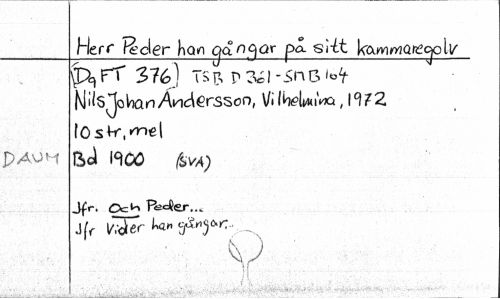 Herr Peder han gångar på sitt kammaregolv
(DgFT 376) TSB D 361 - SMB 164
Nils Johan Andersson, Vilhelmina, 1972
10 str, mel
DAUM Bd 1900 (SVA)
Jfr. Och Peder...
Jfr Vider han gångar...